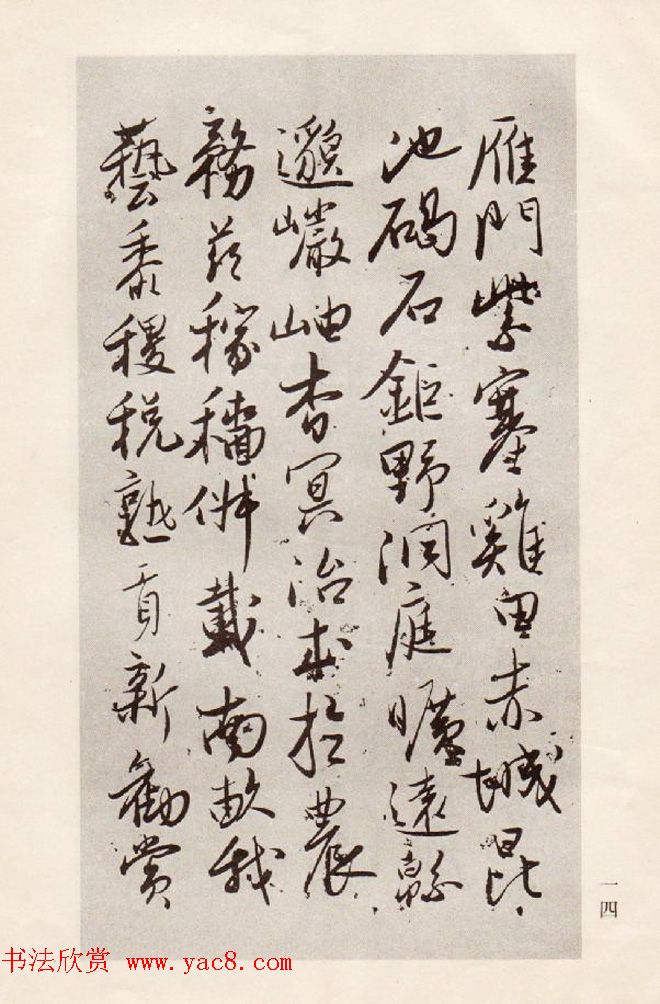 雁門紫塞雞田赤城昆
池碣石鉅野洞庭曠遠緜
邈巖岫杳冥治本於農
務茲稼穡俶載南畝我
藝黍稷稅熟貢新勸賞
一四
书法欣赏 www.yac8.com